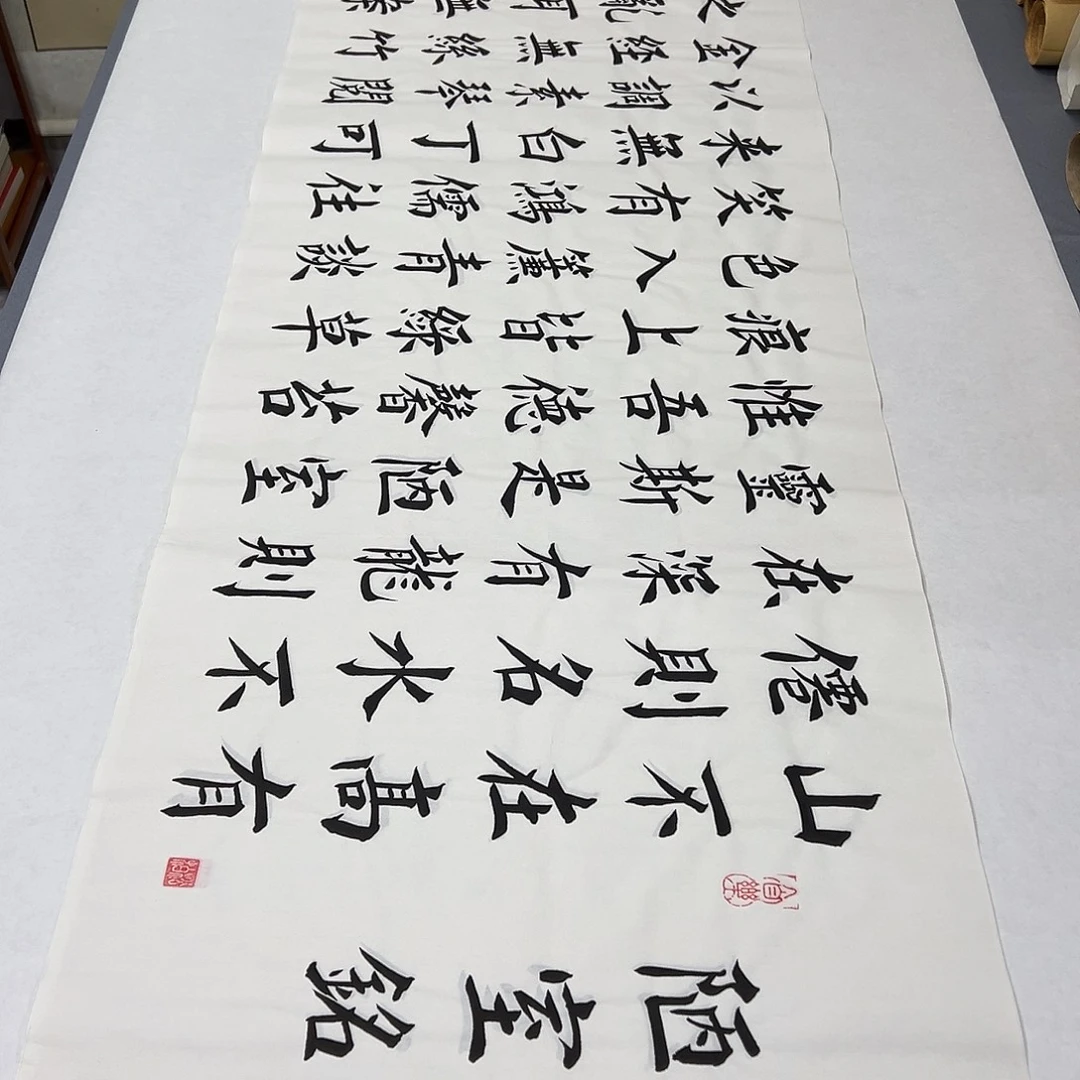 陋室銘
山不在高有
僊則名水不
在深有龍則
靈斯是陋室
惟吾徳馨苔
痕上皆綠草
色入簾青談
笑有鴻儒往
来無白丁可
以調素琴閱
金経無絲竹
之亂耳無案